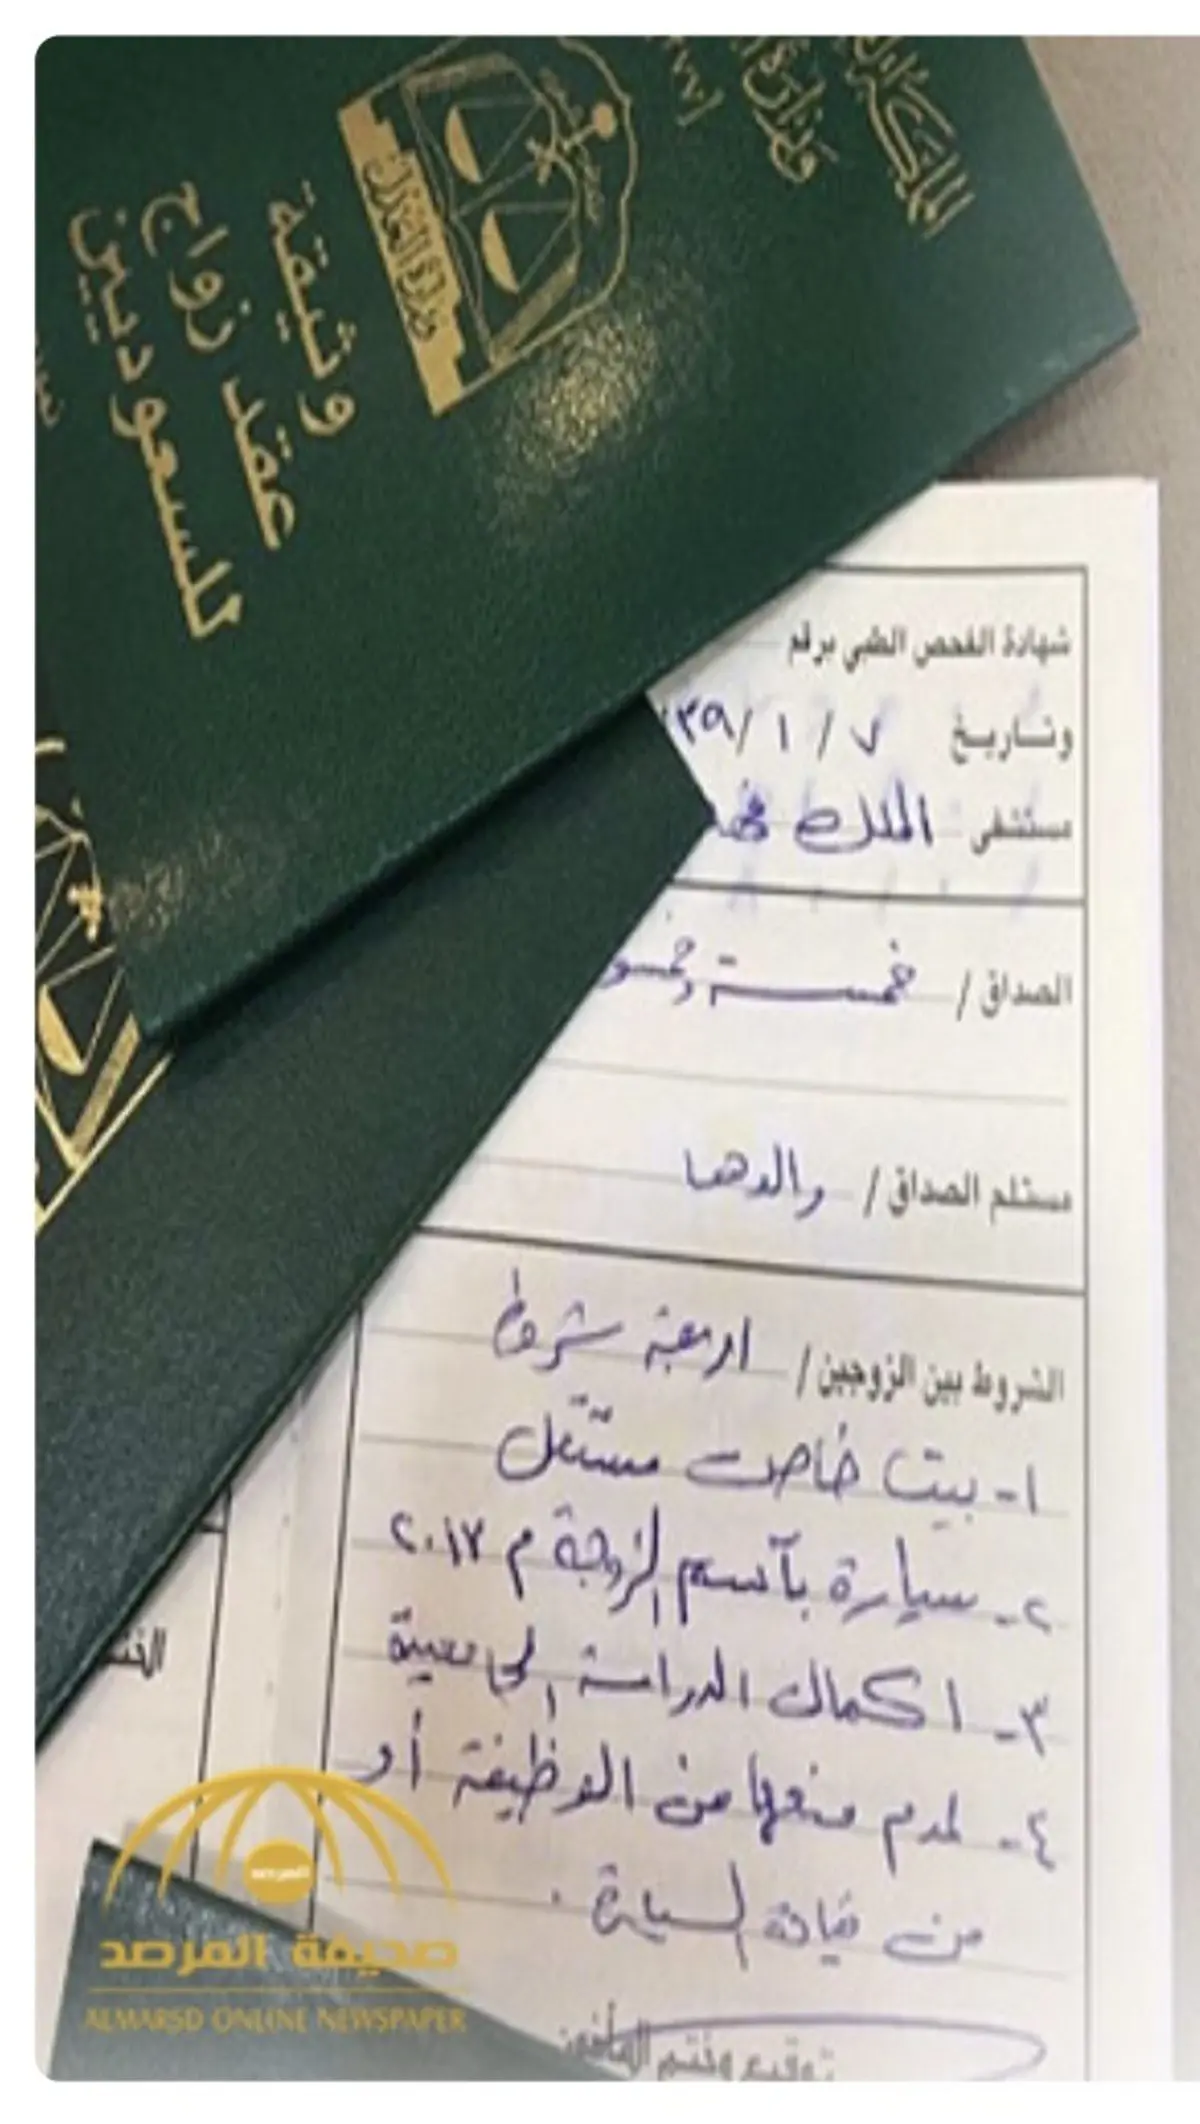 وزارة العدل
وثيقة
عقد زواج
للسعوديين
شهادة الفحص الطبي برقم
وتاريخ ٧ / ١ / ٣٩
مستشفى الملك
الصداق / خمسة
مستلم الصداق / والدها
الشروط بين الزوجين / اربعة شروط
١- بيت خاص مستقل
٢- سيارة بآسم الزوجة م ٢٠١٧
٣- اكمال الدراسة الجامعية
٤- لعدم منعها من الوظيفة أو
من قيادة السيارة .
توقيع وختم المأذون
صحيفة المرصد
ALMARSD ONLINE NEWSPAPER